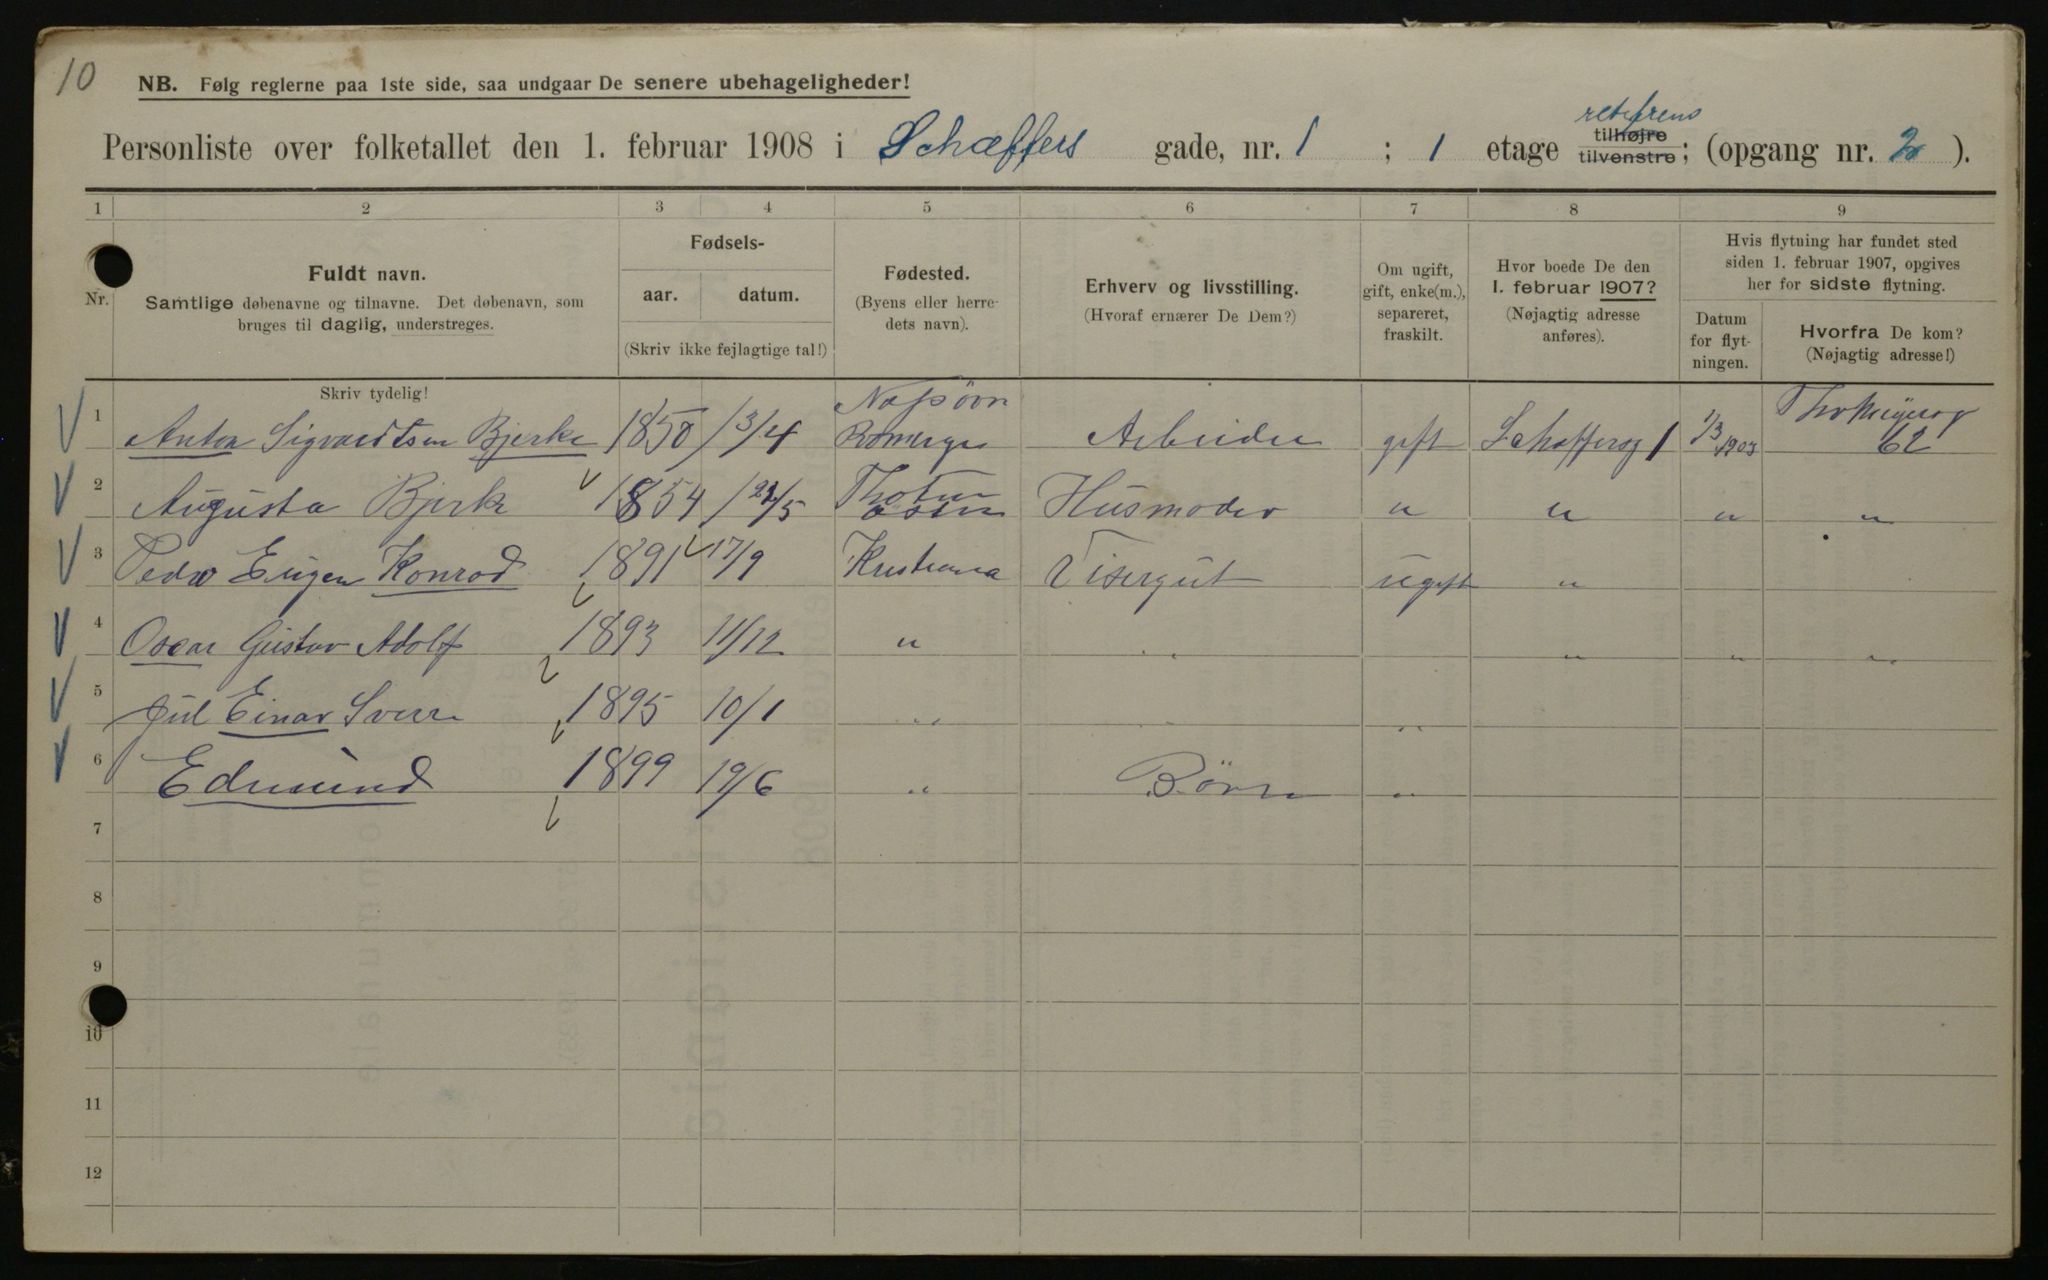 10
NB. Følg reglerne paa 1ste side, saa undgaar De senere ubehageligheder!
Personliste over folketallet den 1. februar 1908 i Schæffers gade, nr. 1 ; 1 etage tilhøjre tilvenstre; (opgang nr. 2 ).
1 2 3 4 5 6 7 8 9
Nr.
Fuldt navn.
Samtlige døbenavne og tilnavne. Det døbenavn, som
bruges til daglig, understreges.
Fødsels-
aar. datum.
(Skriv ikke fejlagtige tal!)
Fødested.
(Byens eller herre-
dets navn).
Erhverv og livsstilling.
(Hvoraf ernærer De Dem?)
Om ugift,
gift, enke(m.),
separeret,
fraskilt.
Hvor boede De den
1. februar 1907?
(Nøjagtig adresse
anføres).
Hvis flytning har fundet sted
siden 1. februar 1907, opgives
her for sidste flytning.
Datum
for flyt-
ningen.
Hvorfra De kom?
(Nøjagtig adresse!)
Skriv tydelig!
1 Anton Sigvardtsen Bjerke 1850 13/4 Arbeider gift Schæffersg 1 1/3 1903 62
2 Augusta Bjerke 1854 Thoten Husmoder " " " "
3 Peder Eugen Konrad 1891 17/9 Kristiania Visergut ugift "
4 Oscar Gustav Adolf 1893 11/12 " " " " "
5 Jul Einar Sverre 1895 10/1 " "
6 Edmund 1899 19/6 " Børn "
7
8
9
10
11
12